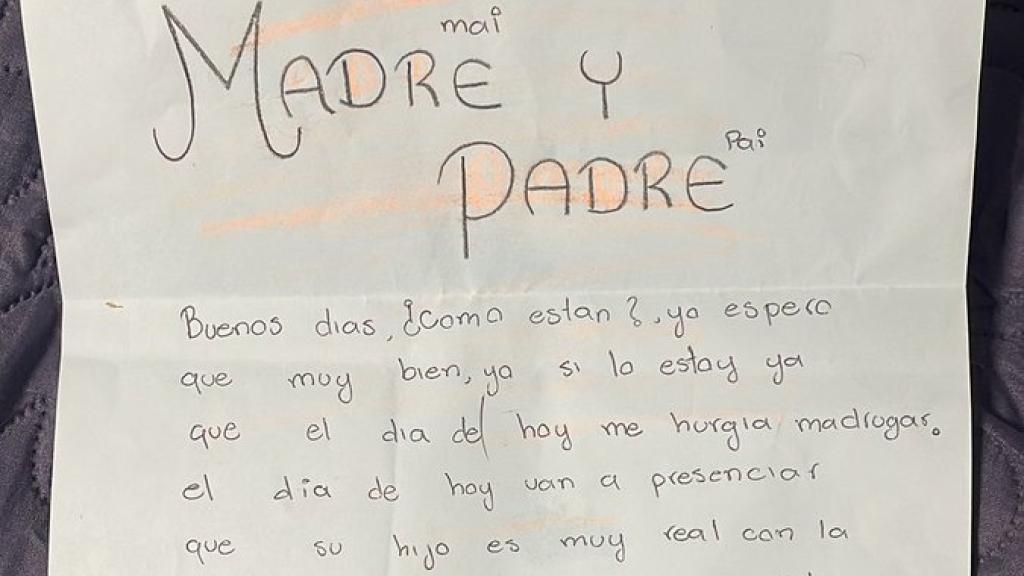 mai
MADRE Y
Pai
PADRE
Buenos dias, ¿como estan?, yo espero
que muy bien, yo si lo estoy ya
que el dia del hoy me hurgia madrugar.
el dia de hoy van a presenciar
que su hijo es muy real con la